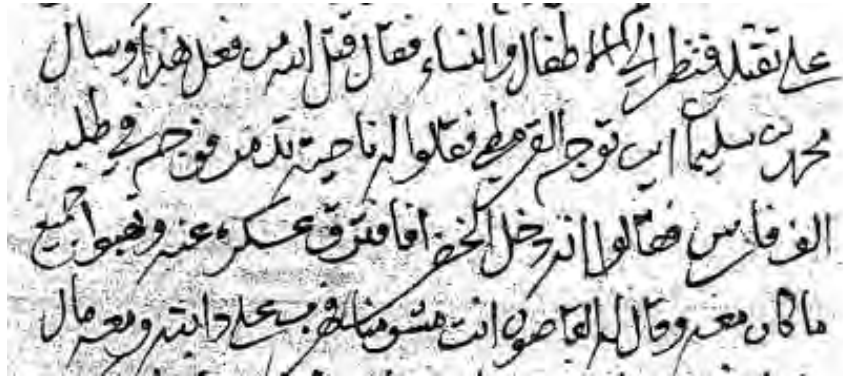 على تقتلا فنظر الى الاطفال والنساء فقال قتل الله من فعل هذا وسال
محمد بن سليمان اين توجه القرمطي فقالوا له ناحية تدمر فوجه في طلبه
الف فارس فقالوا انه دخل افافترق عسكره عنه ونهبوا جميع
ما كان معه وقال له انت مشوم فهرب على دابته ومعه مال